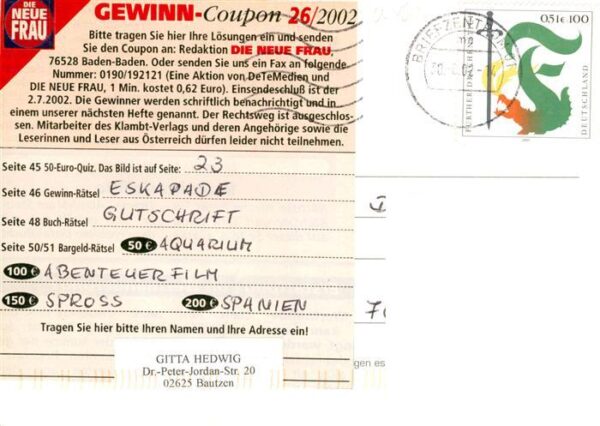 DIE NEUE FRAU
GEWINN-Coupon 26/2002
Bitte tragen Sie hier Ihre Lösungen ein und senden
Sie den Coupon an: Redaktion DIE NEUE FRAU,
76528 Baden-Baden. Oder senden Sie uns ein Fax an folgende
Nummer: 0190/192121 (Eine Aktion von DeTeMedien und
DIE NEUE FRAU, 1 Min. kostet 0,62 Euro). Einsendeschluß ist der
2.7.2002. Die Gewinner werden schriftlich benachrichtigt und in
einem unserer nächsten Hefte genannt. Der Rechtsweg ist ausgeschlos-
sen. Mitarbeiter des Klambt-Verlags und deren Angehörige sowie die
Leserinnen und Leser aus Österreich dürfen leider nicht teilnehmen.
Seite 45 50-Euro-Quiz. Das Bild ist auf Seite: 23
Seite 46 Gewinn-Rätsel ESKAPADE
Seite 48 Buch-Rätsel GUTSCHRIFT
Seite 50/51 Bargeld-Rätsel 50 € AQUARIUM
100 € ABENTEUERFILM
150 € SPROSS 200 € SPANIEN
Tragen Sie hier bitte Ihren Namen und Ihre Adresse ein!
GITTA HEDWIG
Dr.-Peter-Jordan-Str. 20
02625 Bautzen
BRIEFZENTRUM
0,51€ 100
DEUTSCHLAND
FURTHER DRACHENSTICH
gen es